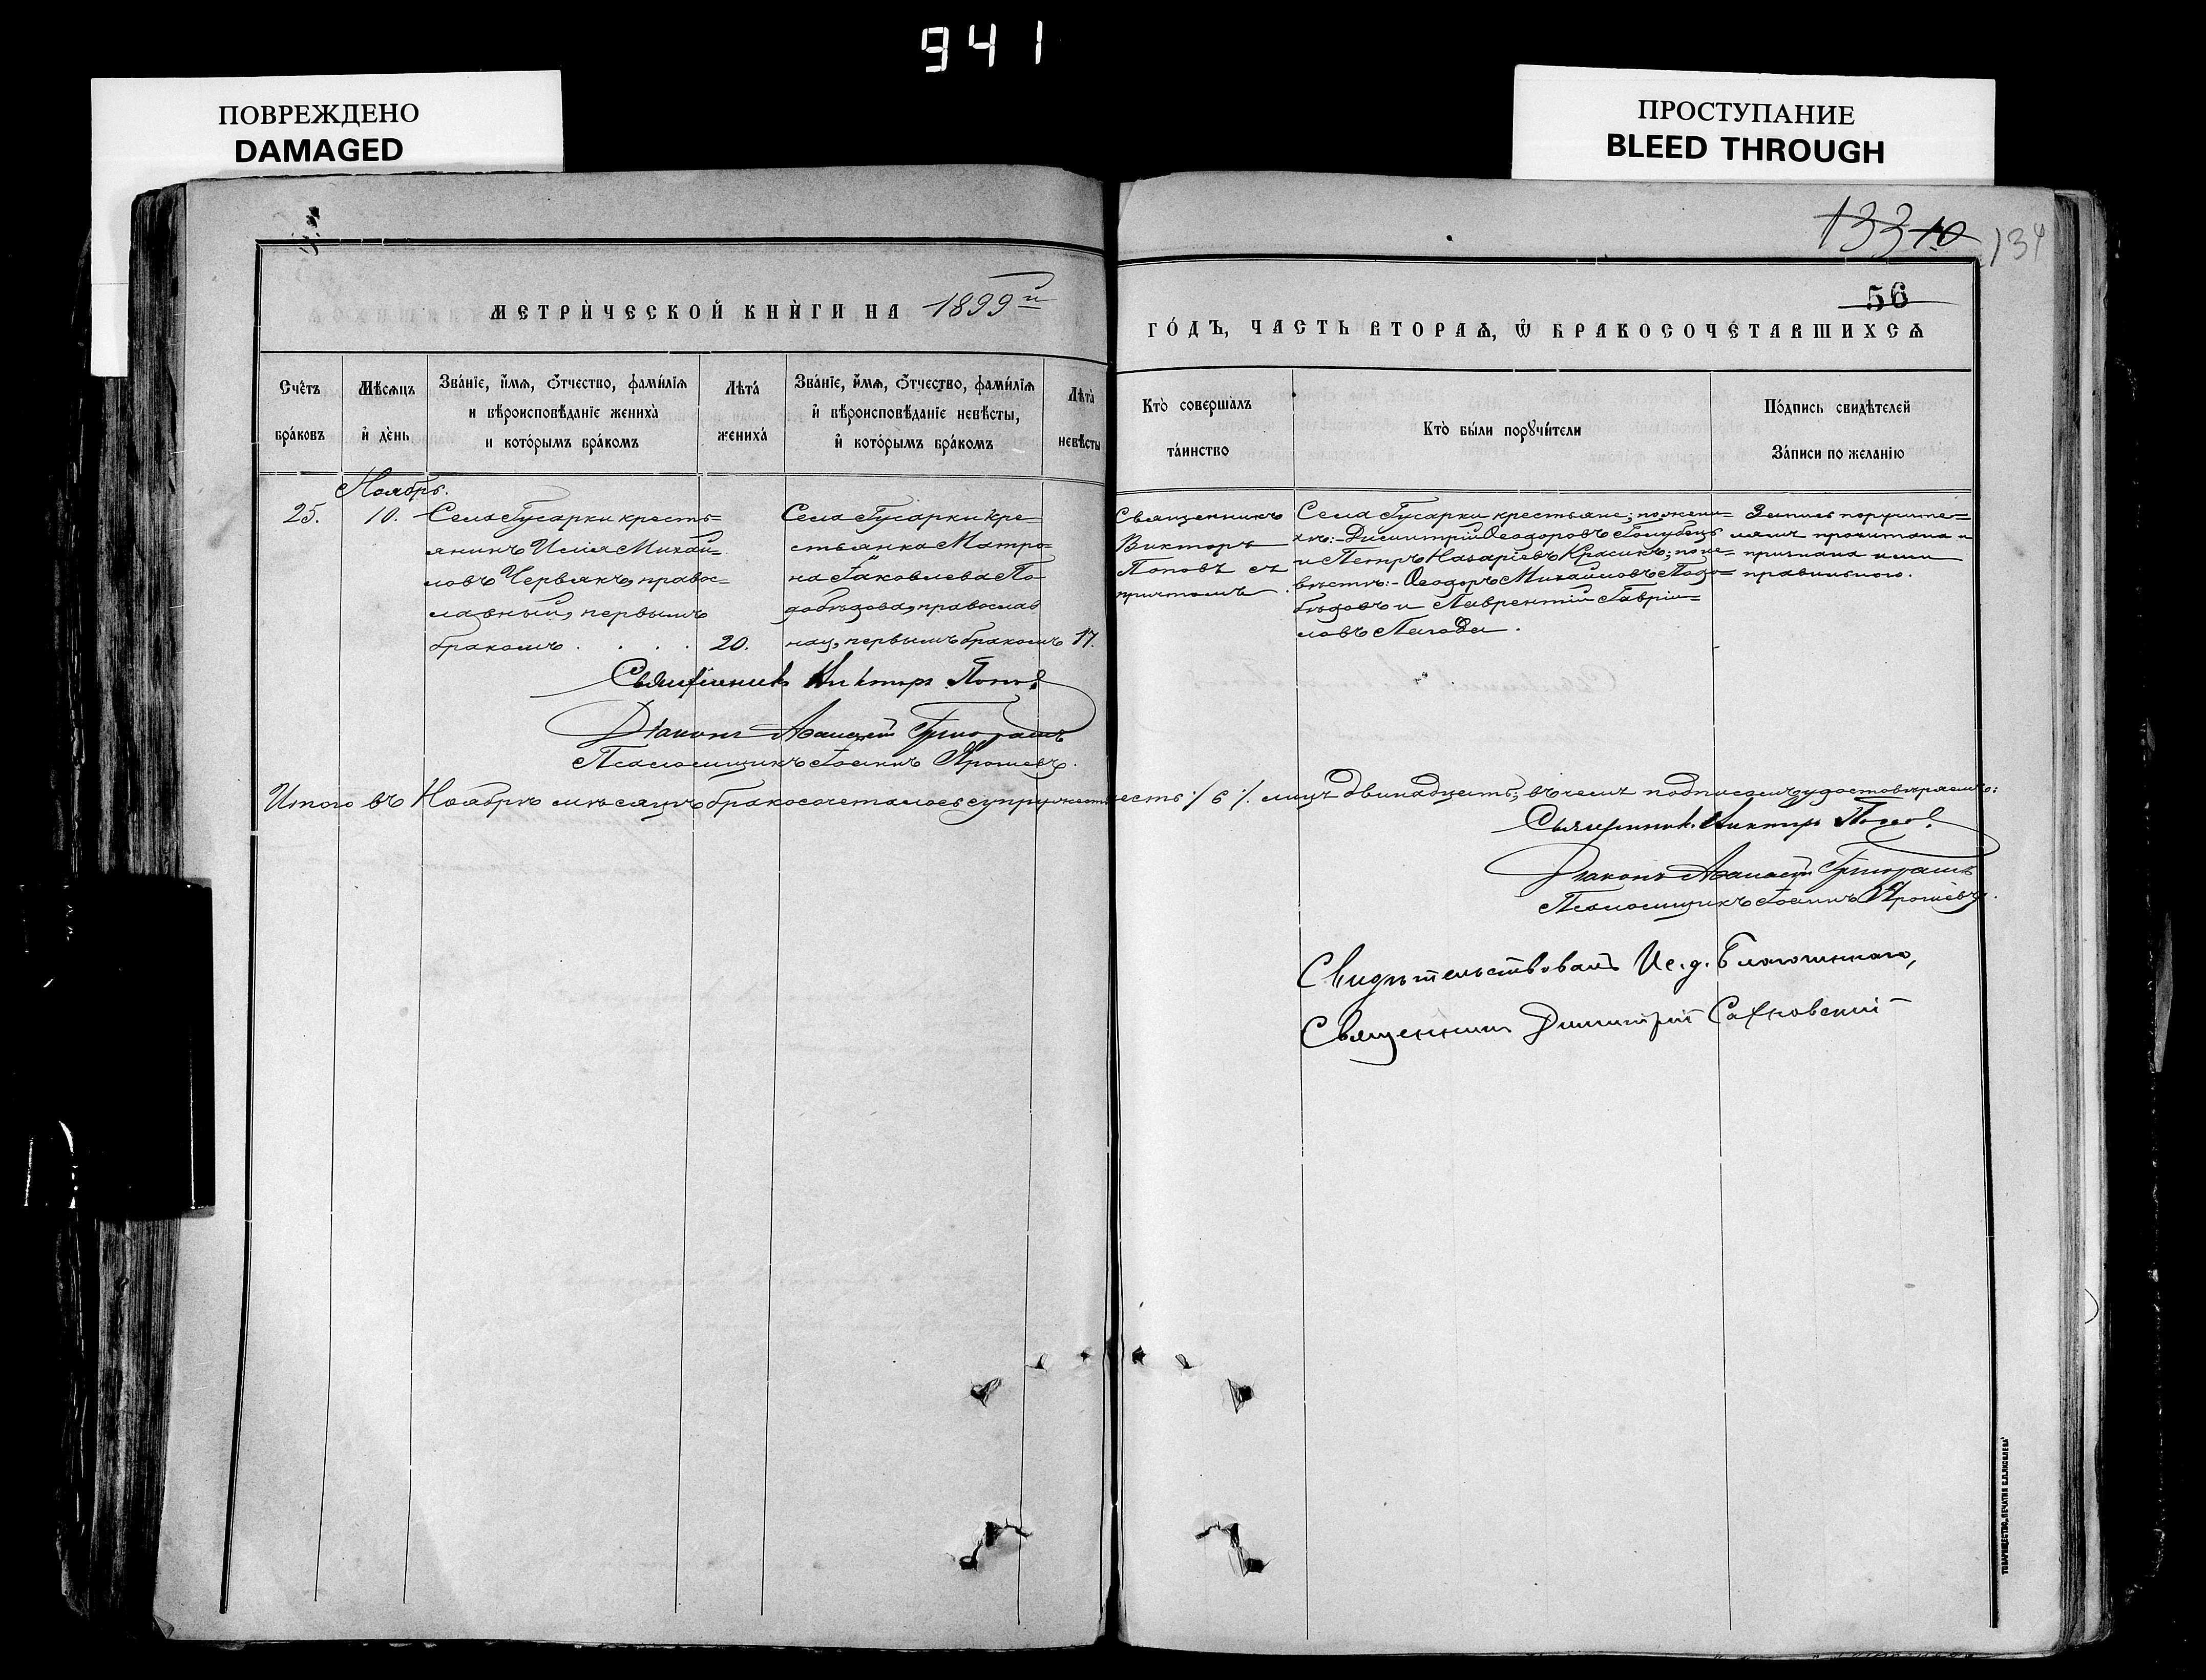 941
ПОВРЕЖДЕНО
DAMAGED
ПРОСТУПАНИЕ
BLEED THROUGH
133 10 134
56
МЕТРИ́ЧЕСКОЙ КНИ́ГИ НА 1899й
ГО́ДЪ, ЧАСТЬ ВТОРАѦ, Ѿ БРАКОСОЧЕТАВШИХСѦ
Счетъ
бра́ковъ
Мѣсѧцъ
и де́нь
Зва́нїе, и́мѧ, ѻтчество, фами́лїѧ
и вѣроисповѣданїе жениха̀
и кото́рымъ бра́комъ
Лѣта̀
жениха̀
Зва́нїе, и́мѧ, ѻтчество, фами́лїѧ
и вѣроисповѣданїе невѣсты,
и кото́рымъ бра́комъ
Лѣта̀
невѣсты
Кто̀ соверша́лъ
та́инство
Кто̀ бы́ли порꙋчи́тели
По́дпись свидѣтелей
За́писи по желанїю
Ноябрь.
25.
10.
Села Гусарки кресть=
янинъ Илія Михаи=
ловъ Червякъ, правос=
лавный, первымъ
бракомъ . . . .
20.
Села Гусарки кре=
стьянка Матро=
на Іаковлева По
добѣдова, православ
ная, первымъ бракомъ
17.
Священникъ
Викторъ
Поповъ съ
причтомъ.
Села Гусарки крестьяне; по жени=
хѣ:- Димитрій Ѳеодоровъ Голубецъ
и Петръ Назаріевъ Красикъ; по не=
вѣстѣ:- Ѳеодоръ Михаиловъ Подо=
бѣдовъ и Лаврентій Гавріи=
ловъ Лагода.
Запись поручите=
лямъ прочитана и
признана ими
правильною.
Священникъ Викторъ Поповъ
Діаконъ Аѳанасій Григорашъ
Псаломщикъ Іоаннъ Ярошевъ.
Итого въ Ноябрѣ мѣсяцѣ бракосочеталось супружествъ шесть /6/. лицъ двѣнадцать; въ чемъ подписомъ удостовѣряемъ:
Священникъ Викторъ Поповъ
Діаконъ Аѳанасій Григорашъ
Псаломщикъ Іоаннъ Ярошевъ.
Свидѣтельствовалъ Ис. д. Благочиннаго,
Священникъ Димитрій Сахновскій
ТОВАРИЩЕСТВО „ПЕЧАТНЯ С.П. ЯКОВЛЕВА"